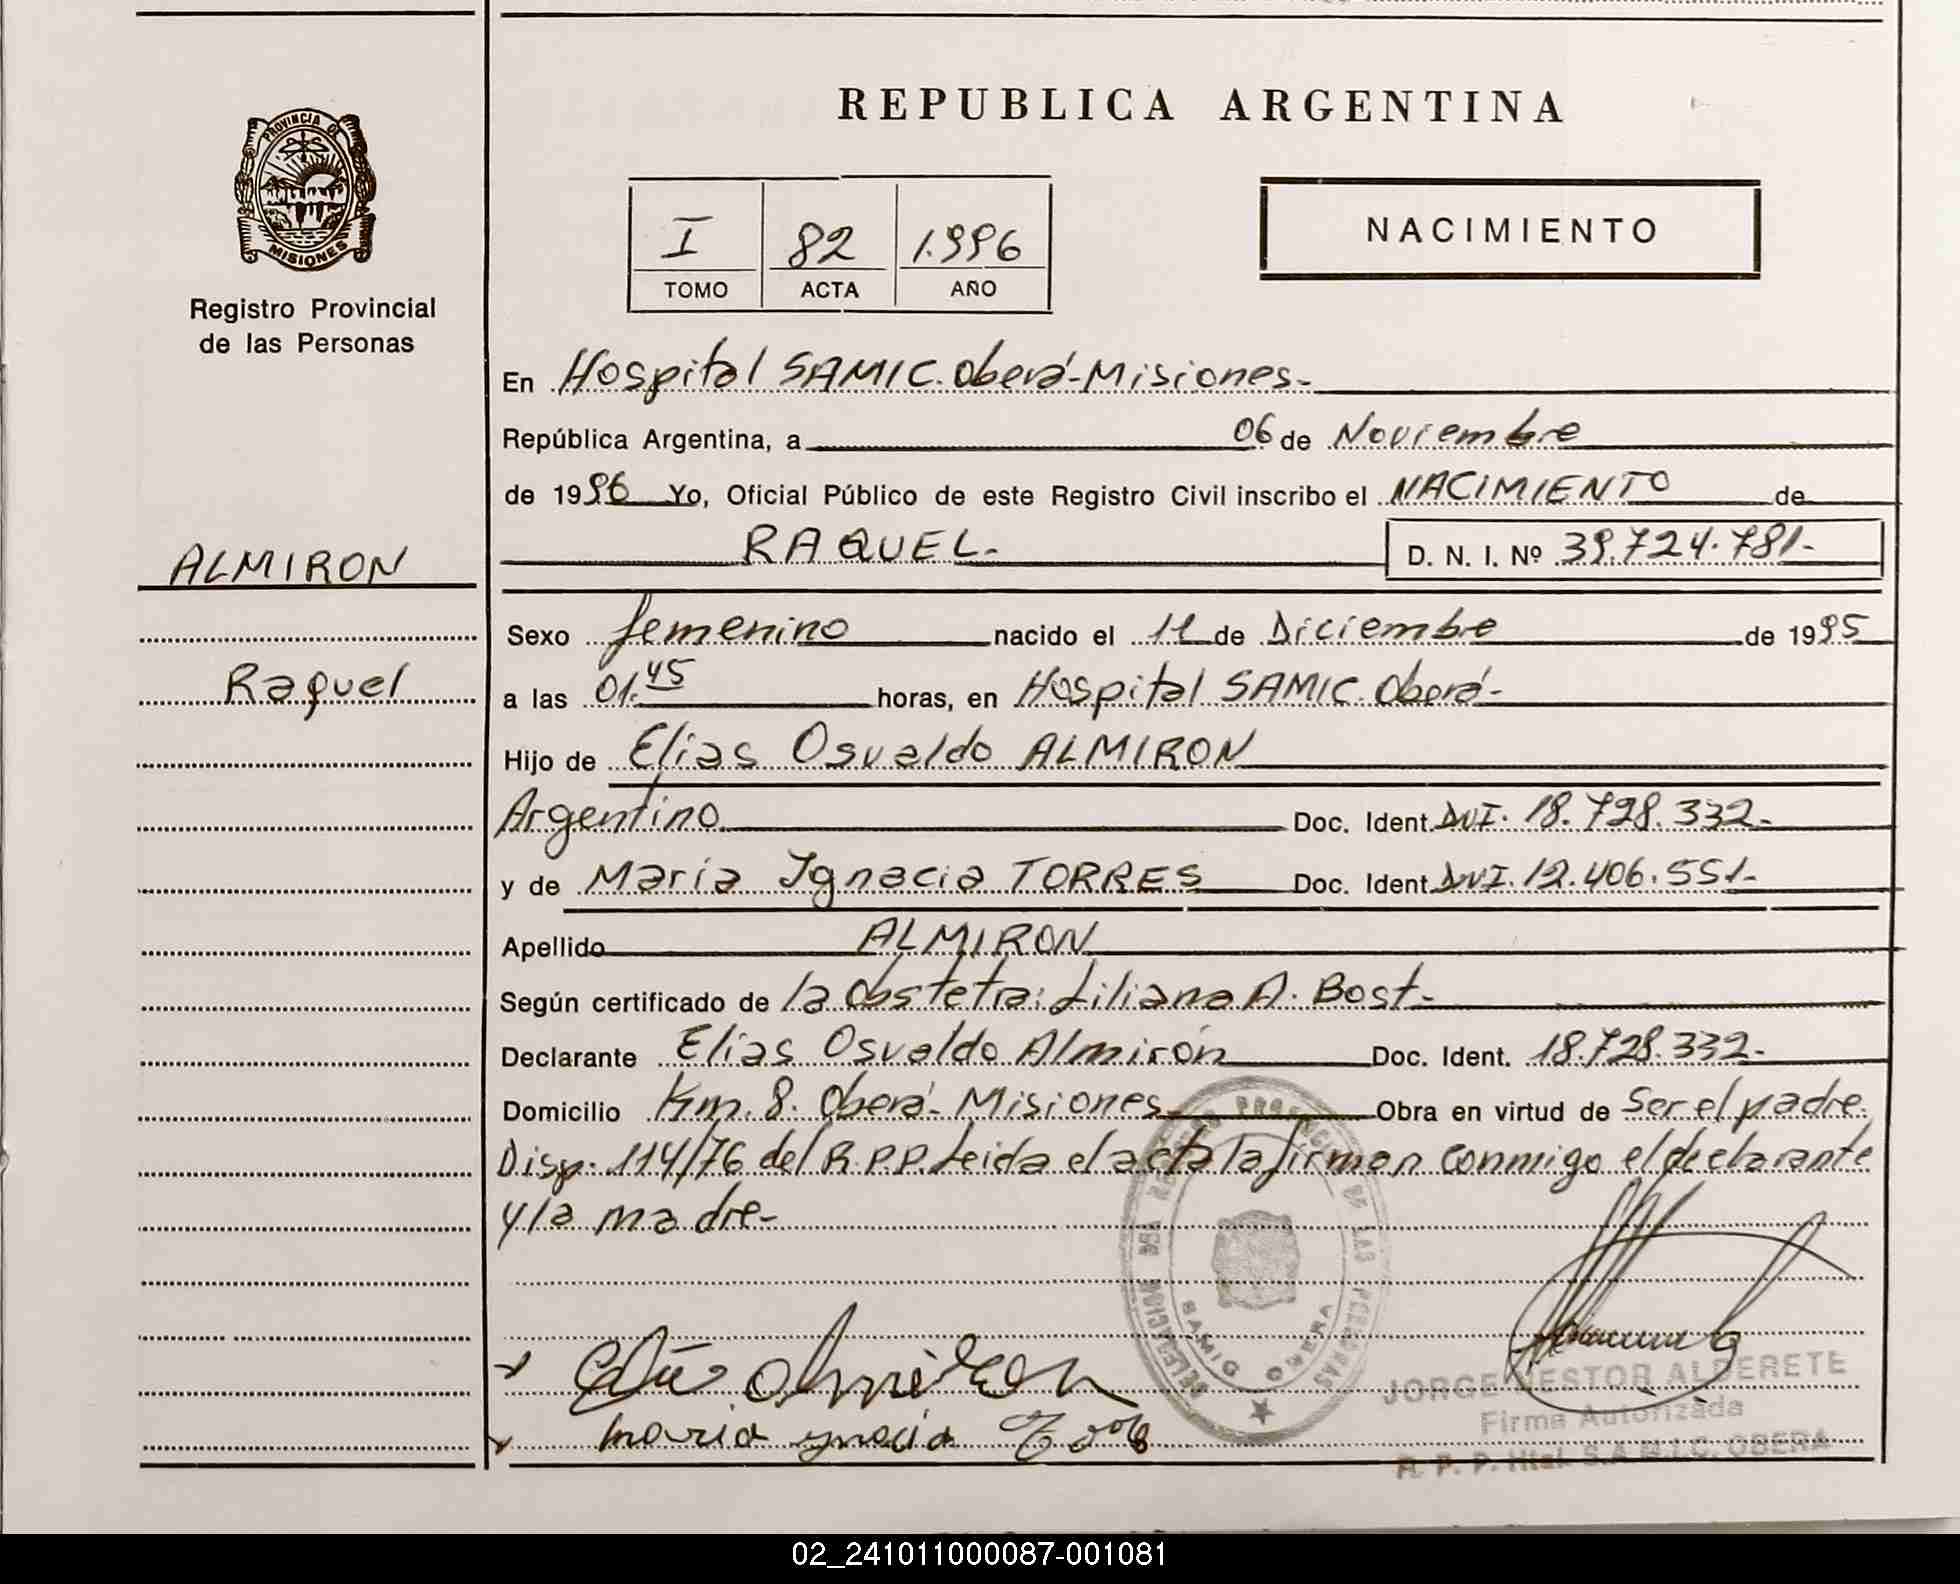 REPUBLICA ARGENTINA
PROVINCIA DE
MISIONES
Registro Provincial
de las Personas
I 82 1.996
TOMO ACTA AÑO
NACIMIENTO
En Hospital SAMIC. Oberá-Misiones-
República Argentina, a 06 de Noviembre
de 1996 Yo, Oficial Público de este Registro Civil inscribo el NACIMIENTO de
RAQUEL- D. N. I. Nº 39.724.781-
ALMIRON
Raquel
Sexo femenino nacido el 11 de Diciembre de 1995
a las 01.45 horas, en Hospital SAMIC. Oberá-
Hijo de Elias Osvaldo ALMIRON
Argentino Doc. Ident. DNI. 18.728.332-
y de María Ignacia TORRES Doc. Ident. DNI. 12.406.551-
Apellido ALMIRON
Según certificado de la Obstetra: Liliana A. Bost-
Declarante Elias Osvaldo Almirón Doc. Ident. 18.728.332-
Domicilio Km. 8. Oberá- Misiones Obra en virtud de Ser el padre.
Disp. 114/76 del R.P.P. Leida el acta la firman conmigo el declarante
y la madre-
DELEGACION DEL REGISTRO PROVINCIAL DE LAS PERSONAS
SAMIC OBERA
maria ynacia
JORGE NESTOR ALDERETE
Firma Autorizada
R. P. P. Htal. S.A.M.I.C. OBERA
02_241011000087-001081